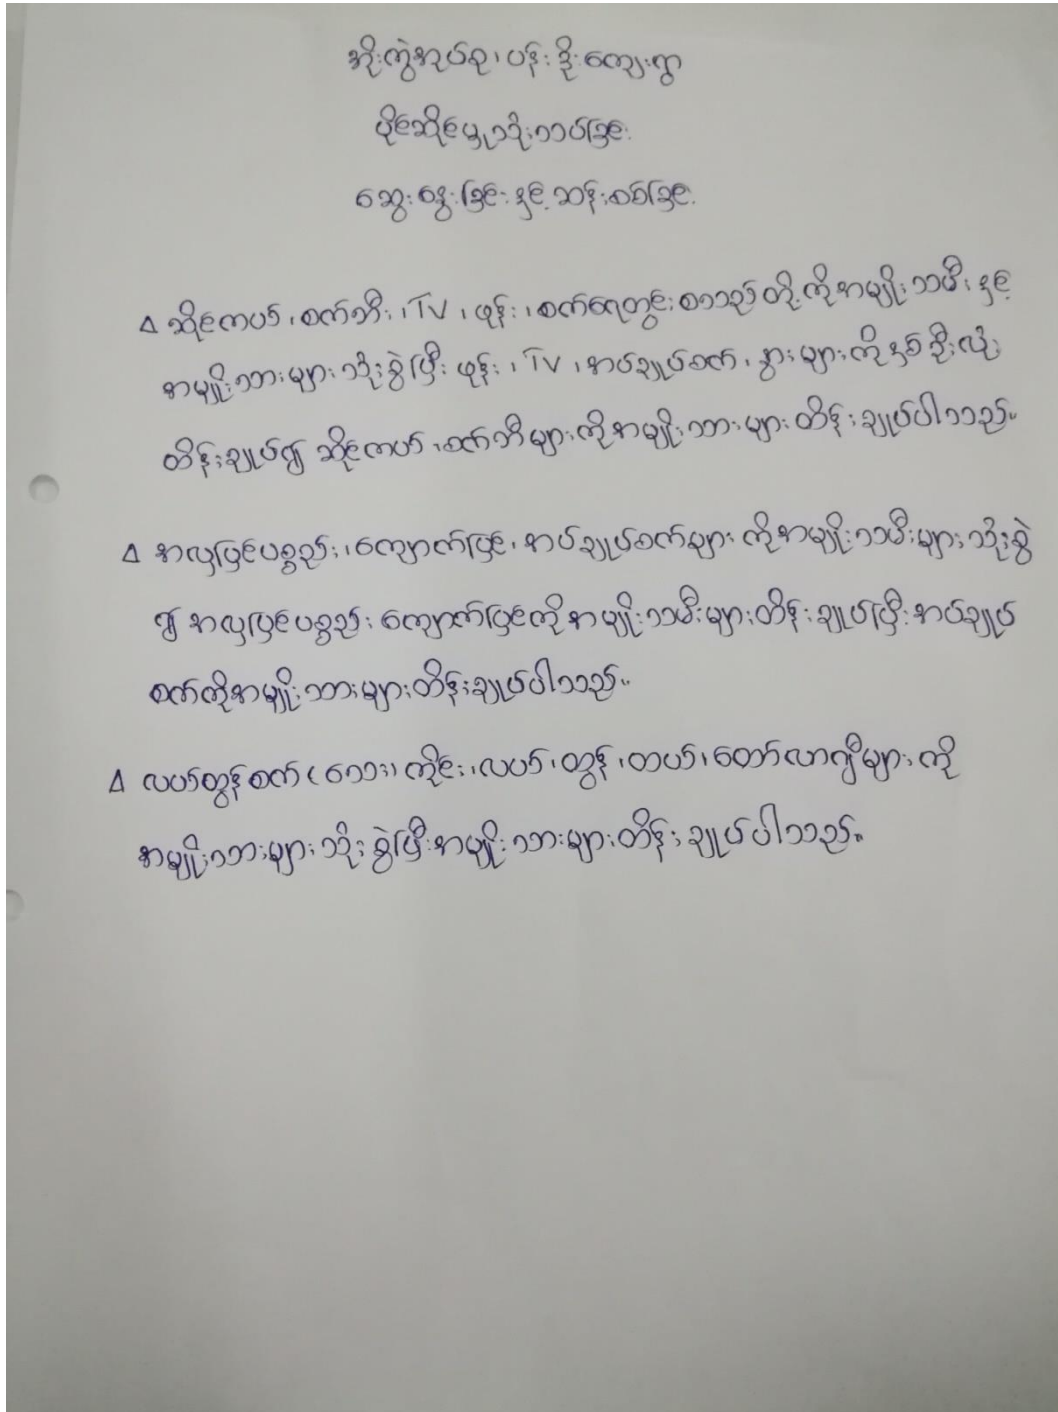 အိုးကွဲအုပ်စု၊ ပန်းဒိုးကျေးရွာ
ပိုင်ဆိုင်မှု သုံးသပ်ခြင်း
ဆွေးနွေးခြင်းနှင့် ဆန်းစစ်ခြင်း
Δ ဆိုင်ကယ်၊ စက်ဘီး၊ TV၊ ဖုန်း၊ စက်ရေတွင်း စသည်တို့ကို အမျိုးသမီးနှင့်
အမျိုးသားများ သုံးစွဲပြီး ဖုန်း၊ TV၊ အပ်ချုပ်စက်၊ နွားများကို နှစ်ဦးလုံး
ထိန်းချုပ်၍ ဆိုင်ကယ်၊ စက်ဘီးများကို အမျိုးသားများ ထိန်းချုပ်ပါသည်။
Δ အလှပြင်ပစ္စည်း၊ ကျောက်ပြင်၊ အပ်ချုပ်စက်များကို အမျိုးသမီးများ သုံးစွဲ
၍ အလှပြင်ပစ္စည်း ကျောက်ပြင်ကို အမျိုးသမီးများ ထိန်းချုပ်ပြီး အပ်ချုပ်
စက်ကို အမျိုးသားများ ထိန်းချုပ်ပါသည်။
Δ လယ်ထွန်စက် (သေး) ကိုင်း၊ လယ်၊ ထွန်၊ တယ်၊ တော်လာဂျီများကို
အမျိုးသားများ သုံးစွဲပြီး အမျိုးသားများ ထိန်းချုပ်ပါသည်။